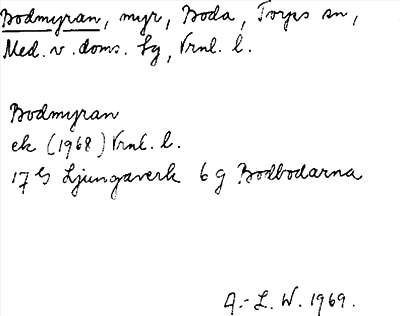 Bodmyran, myr, Boda, Torps sn,
Med. v. doms. lg, Vrnl. l.
Bodmyran
ek (1968) Vrnl. l.
17 G Ljungaverk 6 g Bodbodarna
A.-L. W. 1969.